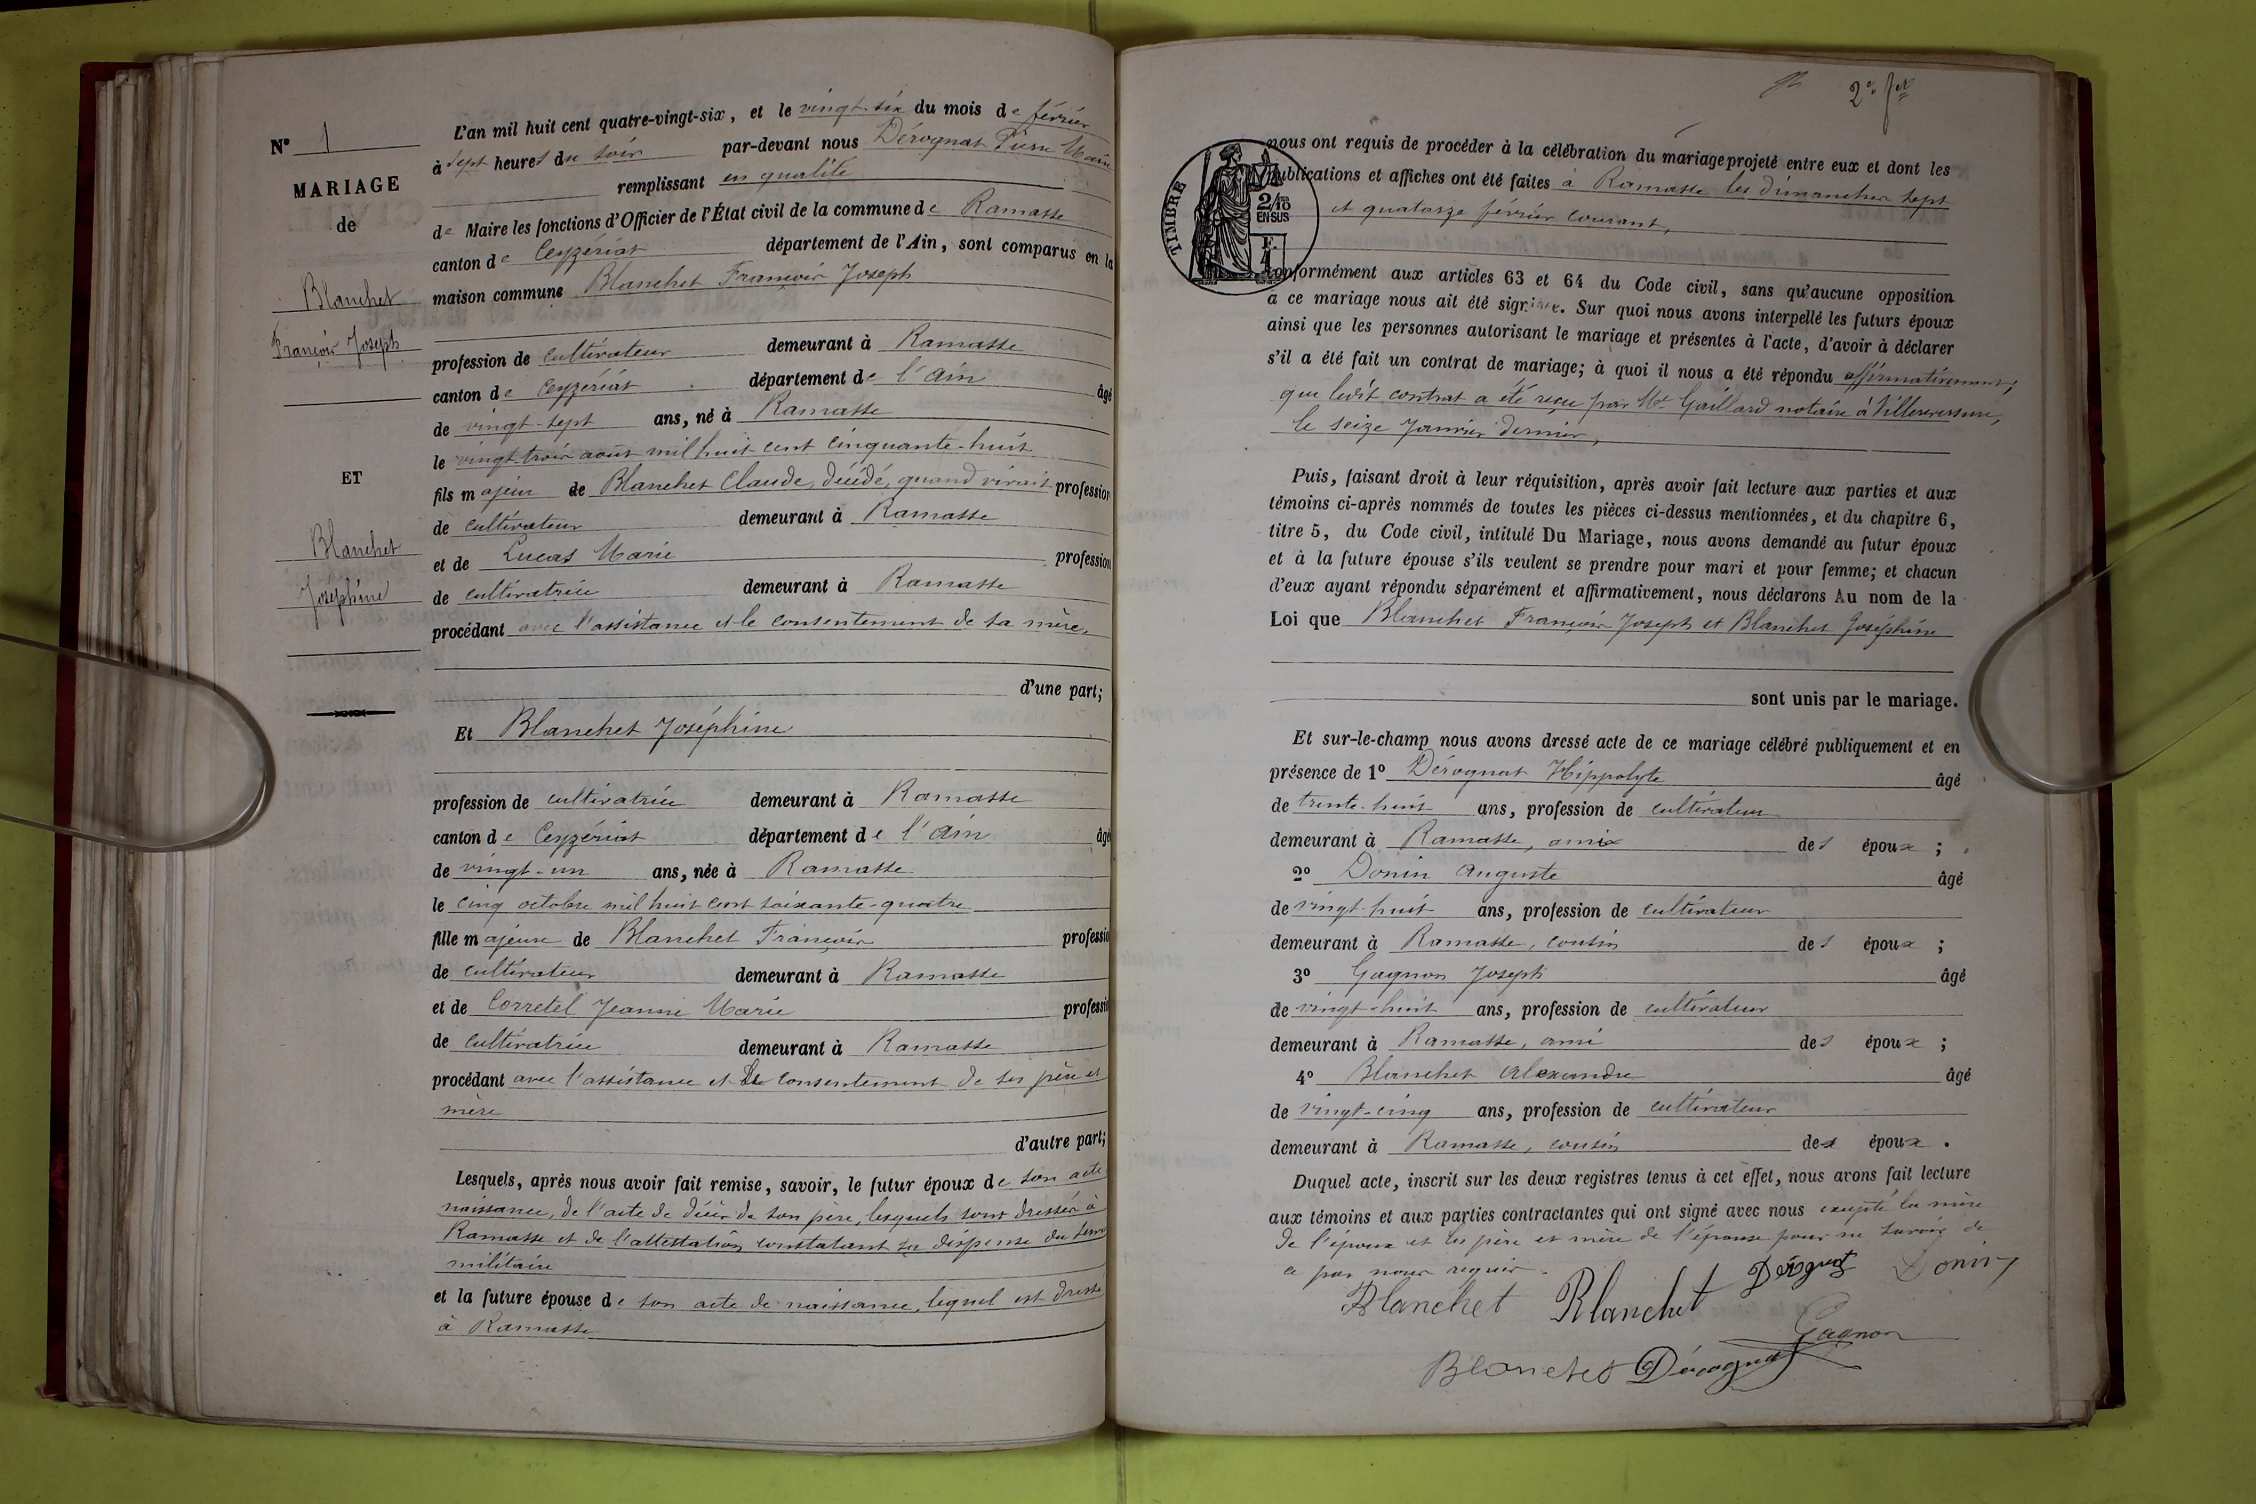 N° 1
MARIAGE
de
Blanchet
François Joseph
ET
Blanchet
Joséphine
L'an mil huit cent quatre-vingt-six, et le vingt-six du mois de février
à sept heures du soir par-devant nous Dérognat Pierre Marie
remplissant en qualité
de Maire les fonctions d'Officier de l'État civil de la commune de Ramasse
canton de Ceyzériat département de l'Ain, sont comparus en la
maison commune Blanchet François Joseph
profession de cultivateur demeurant à Ramasse
canton de Ceyzériat département de l'Ain âgé
de vingt-sept ans, né à Ramasse
le vingt-trois août mil huit cent cinquante-huit
fils majeur de Blanchet Claude, décédé, quand vivait profession
de cultivateur demeurant à Ramasse
et de Lucas Marie profession
de cultivatrice demeurant à Ramasse
procédant avec l'assistance et le consentement de sa mère.
d'une part;
Et Blanchet Joséphine
profession de cultivatrice demeurant à Ramasse
canton de Ceyzériat département de l'Ain âgé
de vingt-un ans, née à Ramasse
le cinq octobre mil huit cent soixante-quatre
fille majeure de Blanchet François professio
de cultivateur demeurant à Ramasse
et de Corretel Jeanne Marie professio
de cultivatrice demeurant à Ramasse
procédant avec l'assistance et le consentement de ses père et
mère
d'autre part;
Lesquels, après nous avoir fait remise, savoir, le futur époux de son acte
naissance, de l'acte de décès de son père, lesquels sont dressés à
Ramasse et de l'attestation constatant sa dispense du serv
militaire
et la future épouse de son acte de naissance, lequel est dressé
à Ramasse
2e fet
TIMBRE
2/10
EN SUS
nous ont requis de procéder à la célébration du mariage projeté entre eux et dont les
publications et affiches ont été faites à Ramasse les dimanches sept
et quatorze février courant,
conformément aux articles 63 et 64 du Code civil, sans qu'aucune opposition
a ce mariage nous ait été signifiée. Sur quoi nous avons interpellé les futurs époux
ainsi que les personnes autorisant le mariage et présentes à l'acte, d'avoir à déclarer
s'il a été fait un contrat de mariage; à quoi il nous a été répondu affirmativement,
que ledit contrat a été reçu par Me Gaillard notaire à Villereversure,
le seize Janvier dernier,
Puis, faisant droit à leur réquisition, après avoir fait lecture aux parties et aux
témoins ci-après nommés de toutes les pièces ci-dessus mentionnées, et du chapitre 6,
titre 5, du Code civil, intitulé Du Mariage, nous avons demandé au futur époux
et à la future épouse s'ils veulent se prendre pour mari et pour femme; et chacun
d'eux ayant répondu séparément et affirmativement, nous déclarons Au nom de la
Loi que Blanchet François Joseph et Blanchet Joséphine
sont unis par le mariage.
Et sur-le-champ nous avons dressé acte de ce mariage célébré publiquement et en
présence de 1° Dérognat Hippolyte âgé
de trente-huit ans, profession de cultivateur
demeurant à Ramasse, ami des époux ;
2° Donin Auguste âgé
de vingt-huit ans, profession de cultivateur
demeurant à Ramasse, cousin des époux ;
3° Gagnon Joseph âgé
de vingt-huit ans, profession de cultivateur
demeurant à Ramasse, ami des époux ;
4° Blanchet Alexandre âgé
de vingt-cinq ans, profession de cultivateur
demeurant à Ramasse, cousin des époux .
Duquel acte, inscrit sur les deux registres tenus à cet effet, nous avons fait lecture
aux témoins et aux parties contractantes qui ont signé avec nous excepté la mère
de l'époux et les père et mère de l'épouse pour ne savoir de
ce par nous requis.
Blanchet Blanchet Dérognat Donin
Gagnon
Blanchet Dérognat